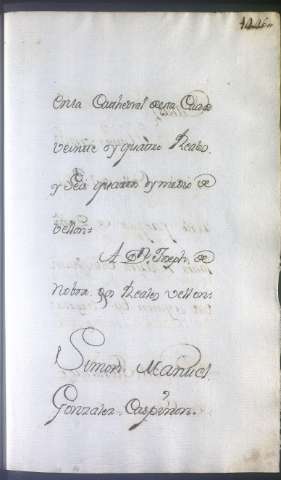 en la Cathedral de esta Ciudad
veinte y quatro Reales,
y seis quartos y medio de
vellon=
A Dn. Joseph, de
Noboa. Reales vellon=
Simon Manuel
Gonzalez Caspiñon.